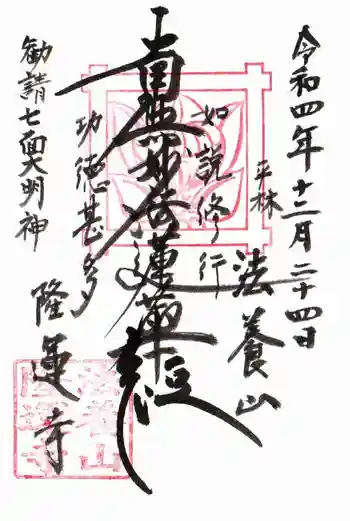 令和四年十二月二十四日
平林
法養山
如説修行
南無妙法蓮華経
功徳甚多
隆運寺
勧請七面大明神